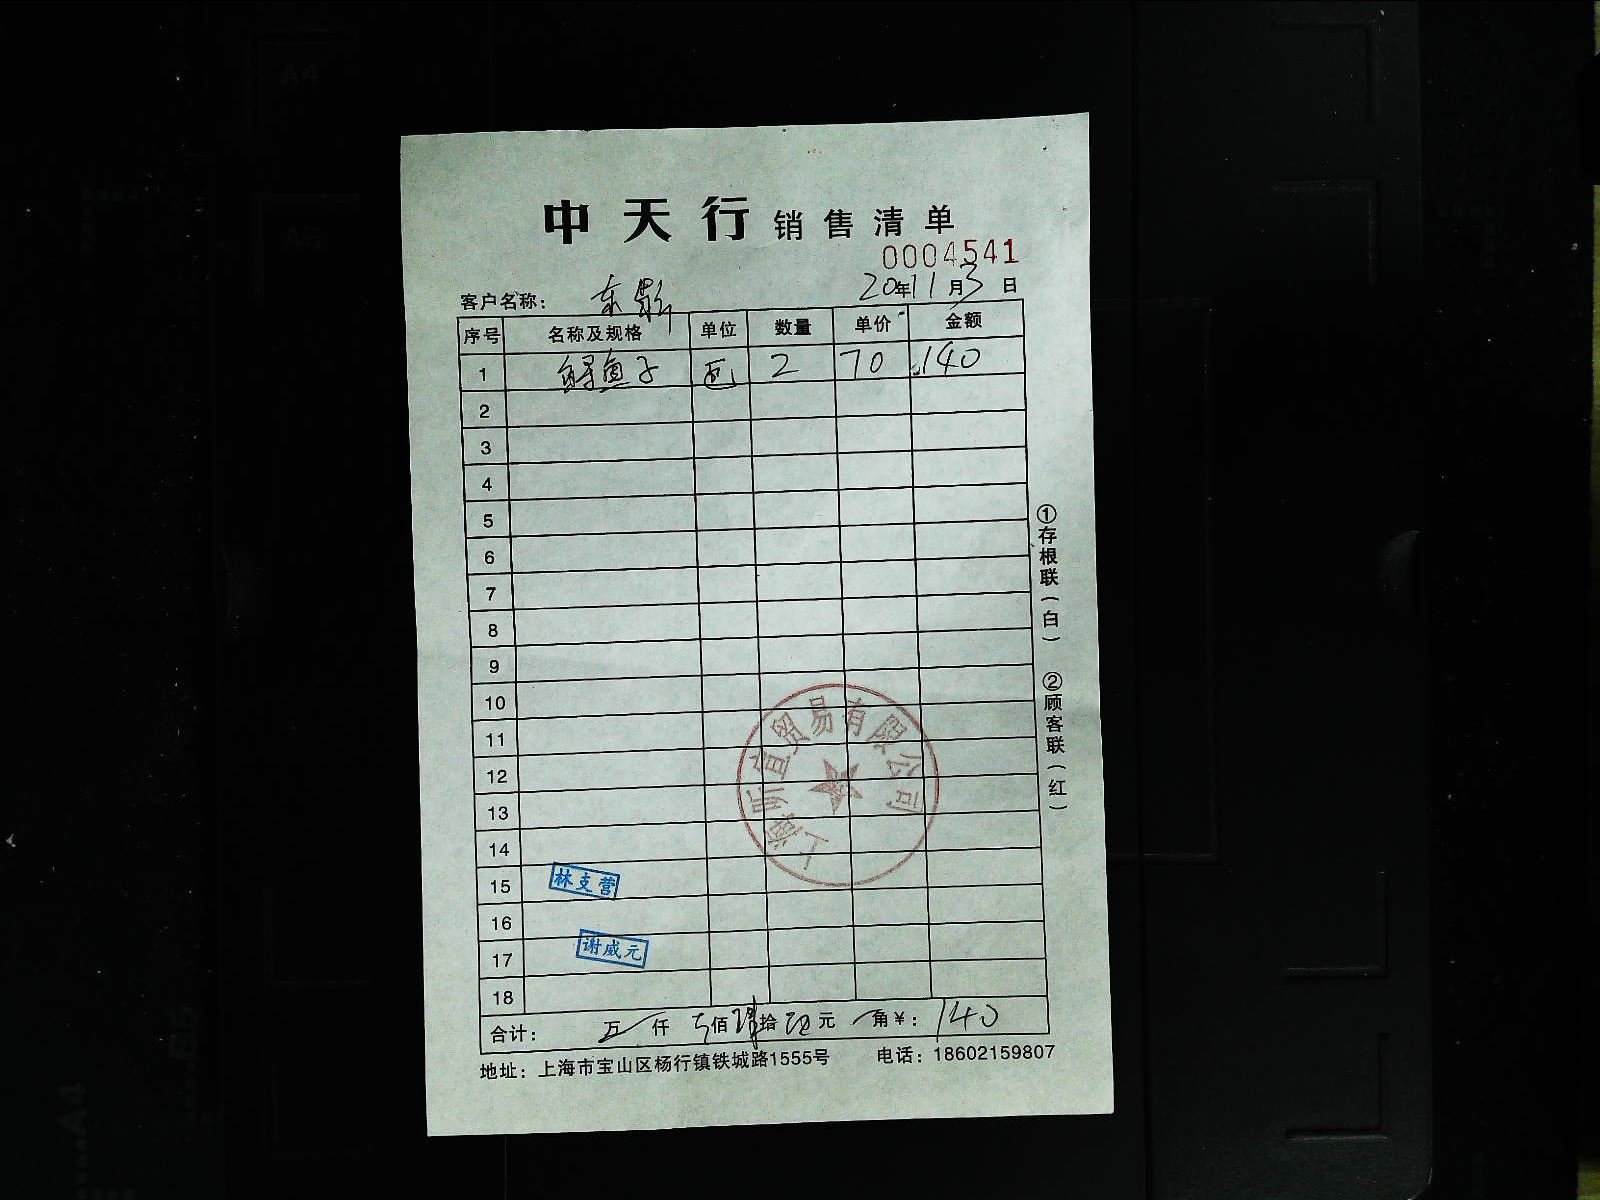 中天行 销售清单
0004541
客户名称： 东
20年11月3日
序号 名称及规格 单位 数量 单价 金额
1 鲟鱼子 包 2 70 140
2
3
4
5
6
7
8
9
10
11
12
13
14
15 林支营
16
17 谢威元
18
合计： 万 仟 佰 肆拾 元 角 ¥：140
地址：上海市宝山区杨行镇铁城路1555号 电话：18602159807
①存根联（白） ②顾客联（红）
上海昕宜贸易有限公司
A4
A5